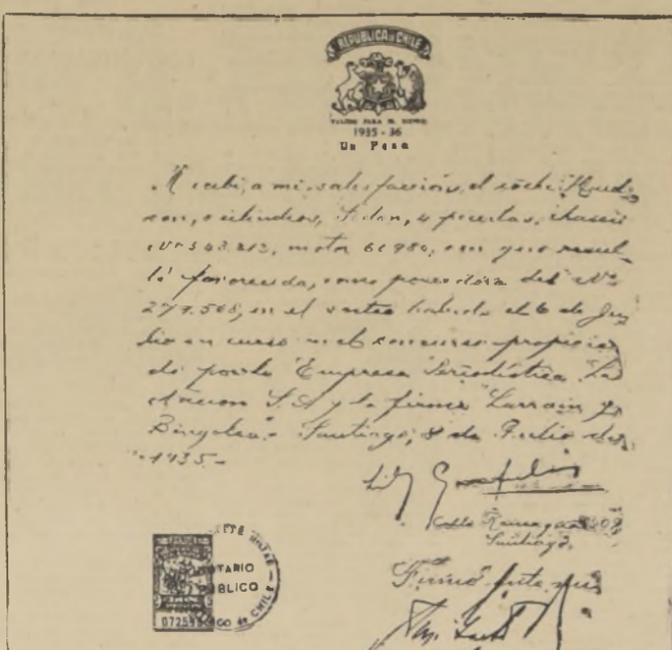 REPUBLICA DE CHILE
VALIDO PARA EL BIENIO
1935 - 36
Un Peso
Recibí, a mi satisfacción, el coche Hud-
son, 8 cilindros, Sedan, 4 puertas, chassis
Nº 543.212, motor 61980, con que resul-
té favorecida, como poseedora del Nº
279.568, en el sorteo habido el 6 de Ju-
lio en curso en el concurso propicia-
do por la Empresa Periodística La
Nación S.A y la firma Larraín y
Santiago, 8 de Julio de
1935.-
Calle
Santiago,
Firmó ante mí
NOTARIO
PUBLICO
CHILE